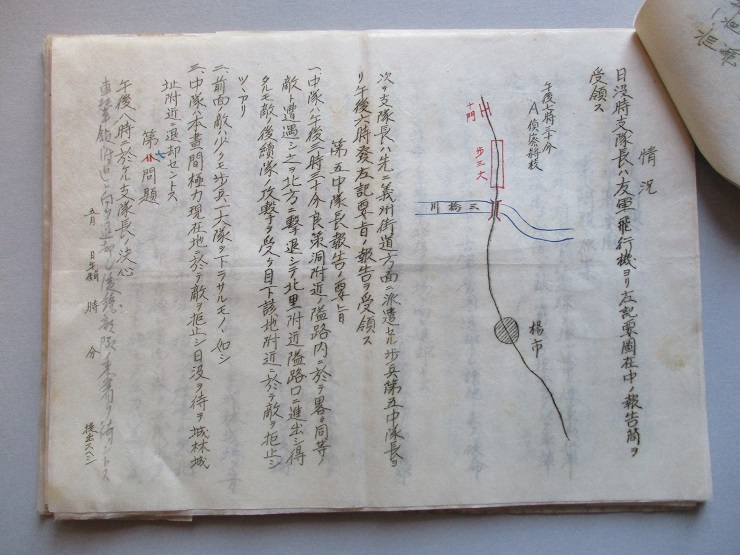 情況
日没時支隊長ハ友軍飛行機ヨリ左記要図在中ノ報告筒ヲ
受領ス
午後六時三十分
A偵察斜校
十門
歩三大
三橋川
楊市
次テ支隊長ハ先ニ義州街道方面ニ派遣セル歩兵第五中隊長ヨ
リ午後六時発左記要旨ノ報告ヲ受領ス
第五中隊長報告ノ要旨
一、中隊ハ午後三時三十分良策洞附近ノ隘路内ニ於テ略々同等ノ
敵ト遭遇シ之ヲ北方ニ撃退シテ北里附近隘路口ニ進出シ得
タルモ敵後続隊ノ攻撃ヲ受ケ目下該地附近ニ於テ敵ヲ拒止シ
ツヽアリ
二、前面ノ敵ハ少クモ歩兵一大隊ヲ下ラサルモノヽ如シ
三、中隊ハ本昼間極力現在地ニ於テ敵ヲ拒止シ日没ヲ待テ城林城
址附近ニ退却セントス
第 問題
午後八時ニ於ケル支隊長ノ決心
五月 日午前 時 分
提出スヘシ